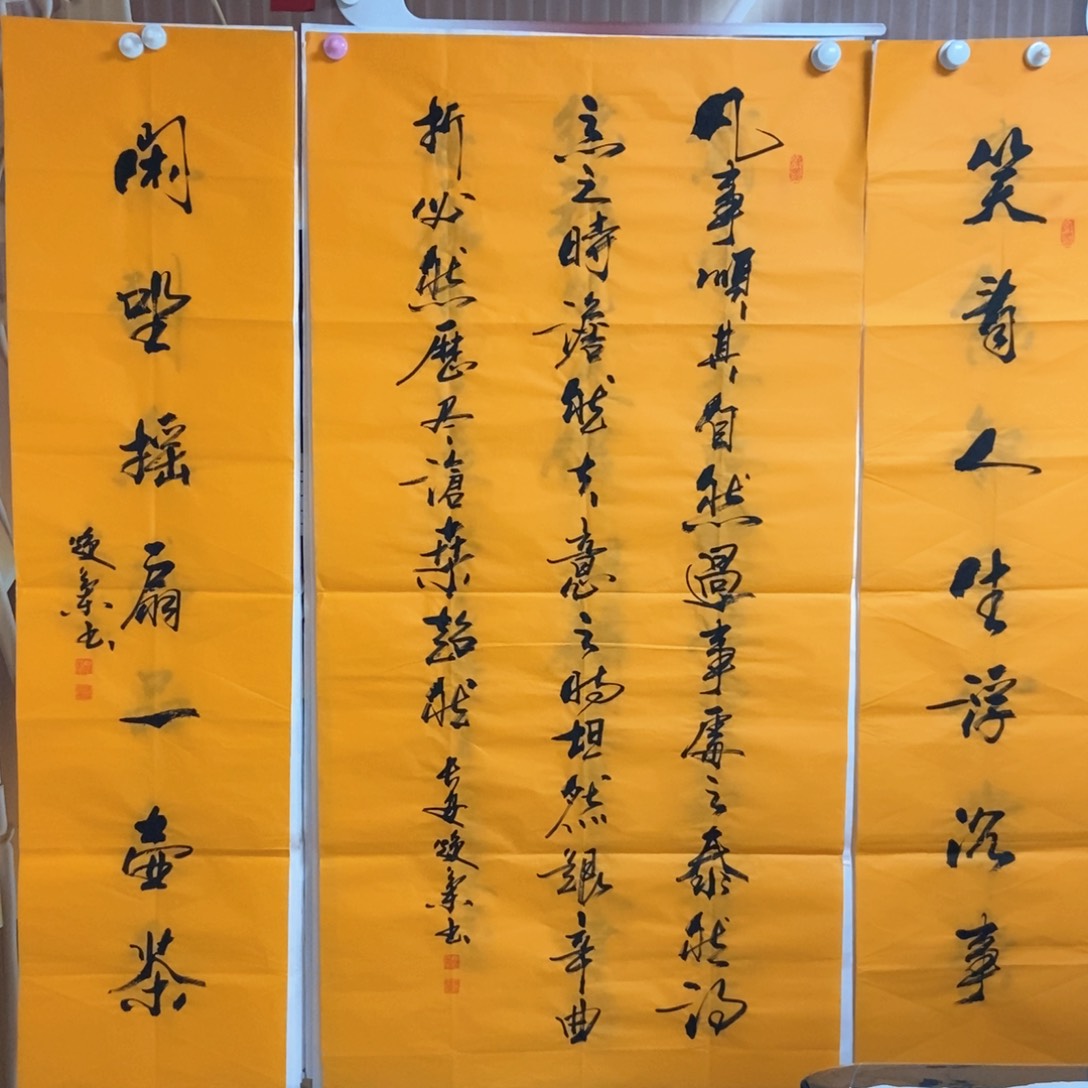 笑看人生浮沉事
凡事順其自然遇事處之泰然得
意之時澹然失意之時坦然艱辛曲
折必然歷尽滄桑超然
长安书
閑坐摇扇一壺茶
书